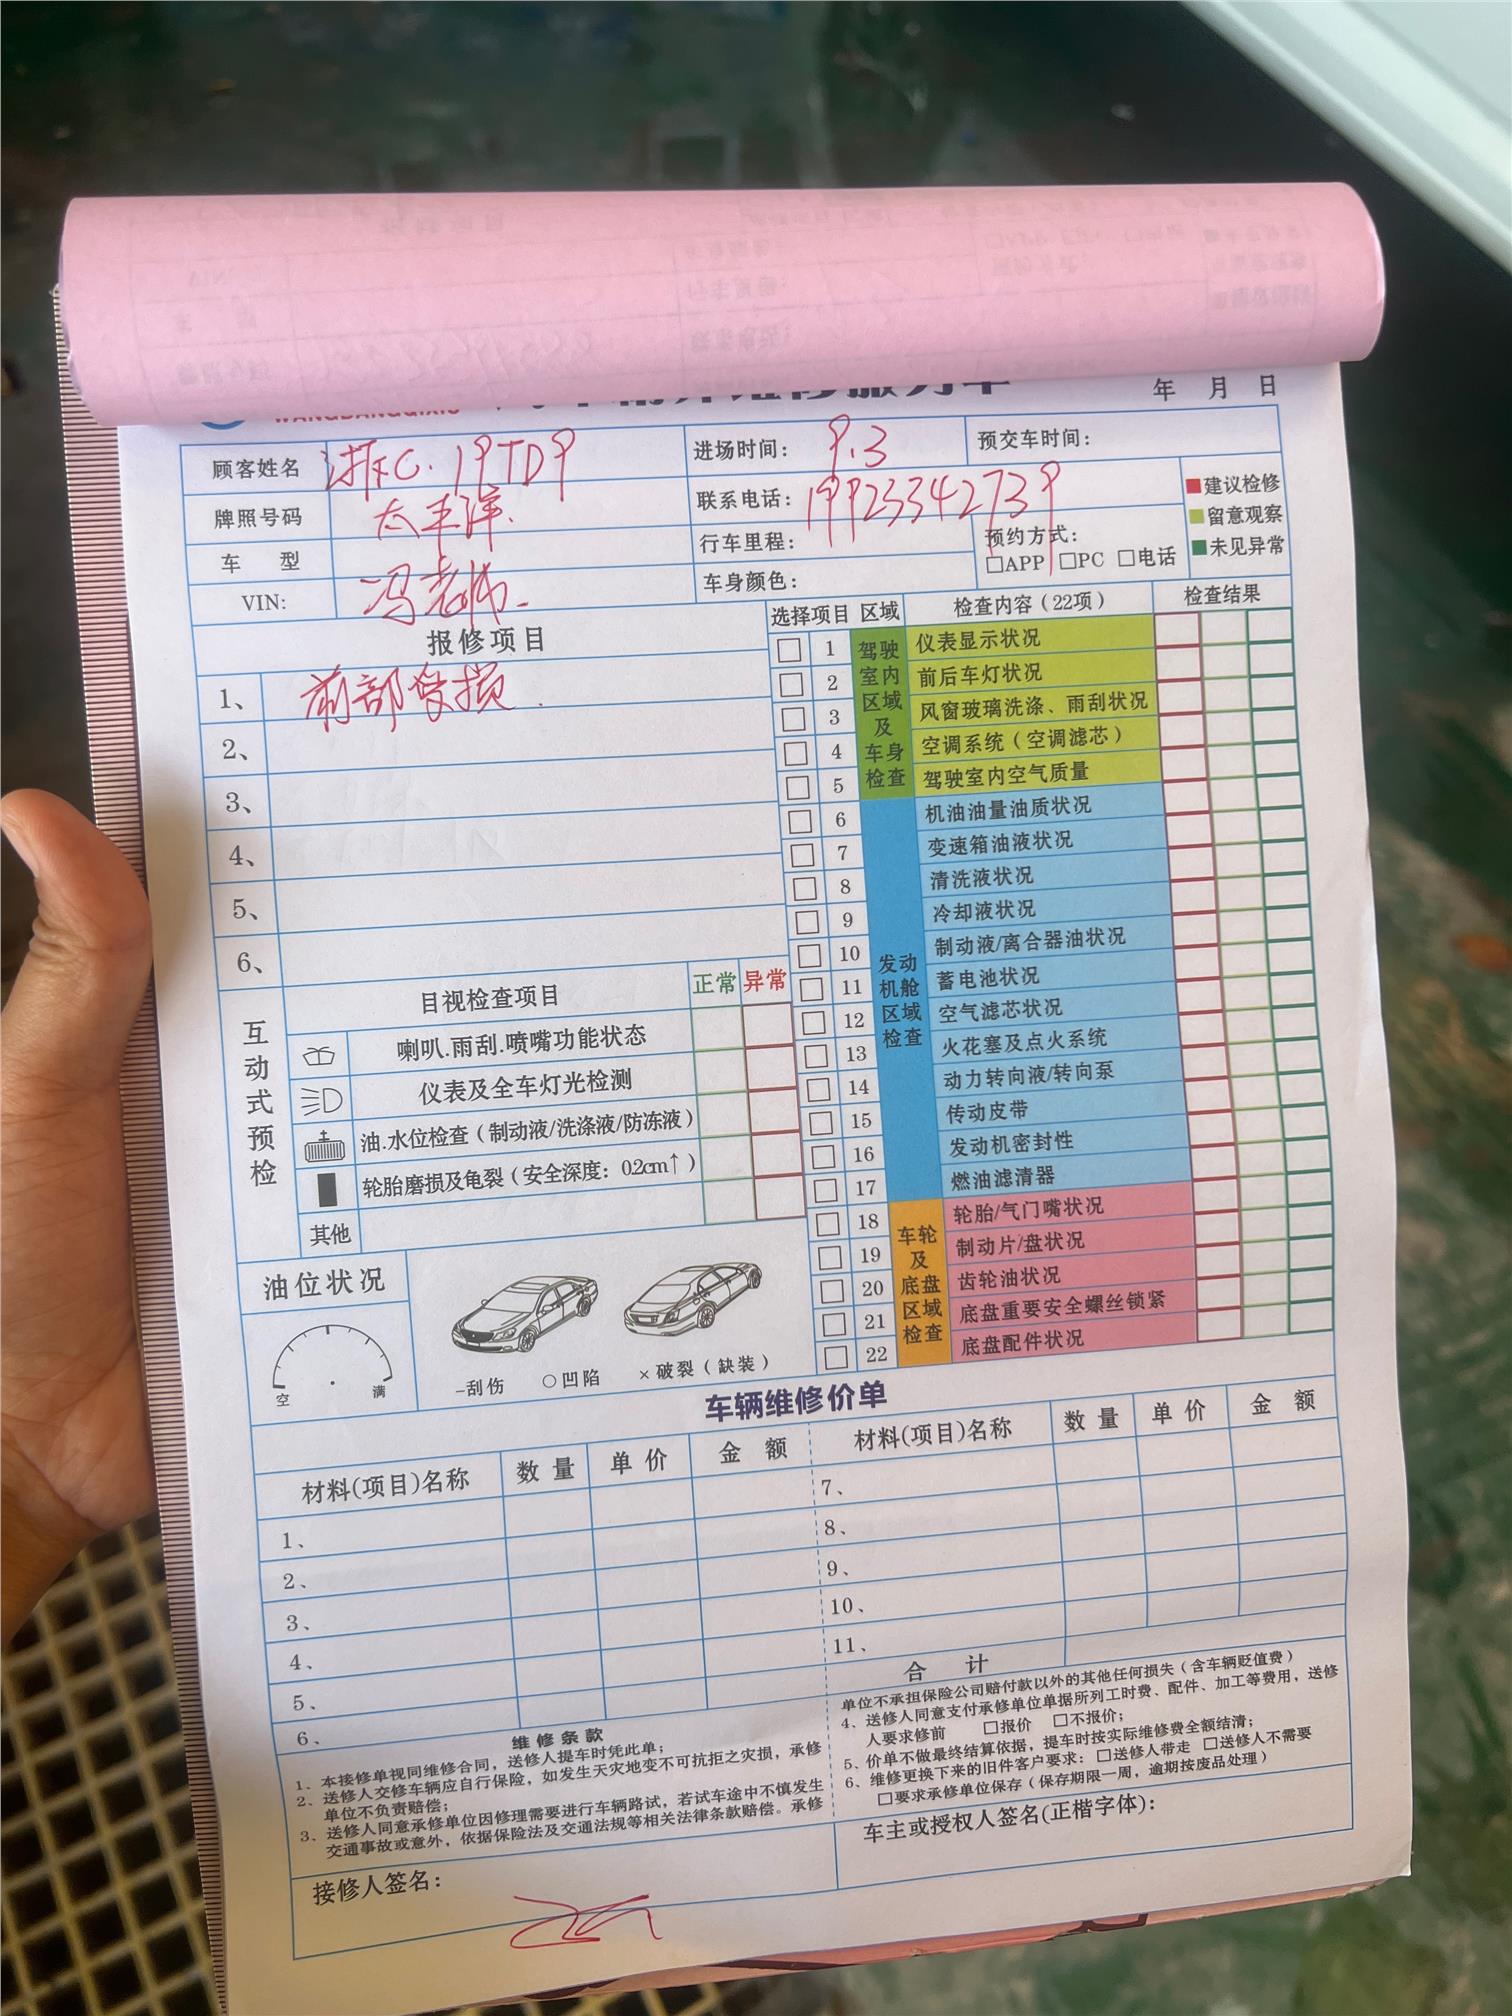 年 月 日
顾客姓名 浙C·19TD9 进场时间: 9.3 预交车时间:
牌照号码 太平洋. 联系电话: 19923342739
车 型 行车里程: 预约方式:
□APP □PC □电话
VIN: 冯老师 车身颜色:
■建议检修
■留意观察
■未见异常
报修项目
1、 前部受损.
2、
3、
4、
5、
6、
选择项目 区域 检查内容(22项) 检查结果
驾驶室内区域及车身检查
1 仪表显示状况
2 前后车灯状况
3 风窗玻璃洗涤、雨刮状况
4 空调系统(空调滤芯)
5 驾驶室内空气质量
发动机舱区域检查
6 机油油量油质状况
7 变速箱油液状况
8 清洗液状况
9 冷却液状况
10 制动液/离合器油状况
11 蓄电池状况
12 空气滤芯状况
13 火花塞及点火系统
14 动力转向液/转向泵
15 传动皮带
16 发动机密封性
17 燃油滤清器
车轮及底盘区域检查
18 轮胎/气门嘴状况
19 制动片/盘状况
20 齿轮油状况
21 底盘重要安全螺丝锁紧
22 底盘配件状况
互动式预检
目视检查项目 正常 异常
喇叭.雨刮.喷嘴功能状态
仪表及全车灯光检测
油.水位检查(制动液/洗涤液/防冻液)
轮胎磨损及龟裂(安全深度: 0.2cm↑)
其他
油位状况
空 满
-刮伤 ○凹陷 ×破裂(缺装)
车辆维修价单
材料(项目)名称 数量 单价 金 额 材料(项目)名称 数量 单价 金 额
1、 7、
2、 8、
3、 9、
4、 10、
5、 11、
6、 合 计
维修条款
1、本接修单视同维修合同，送修人提车时凭此单;
2、送修人交修车辆应自行保险，如发生天灾地变不可抗拒之灾损，承修
单位不负责赔偿;
3、送修人同意承修单位因修理需要进行车辆路试，若试车途中不慎发生
交通事故或意外，依据保险法及交通法规等相关法律条款赔偿。承修
单位不承担保险公司赔付款以外的其他任何损失(含车辆贬值费)
4、送修人同意支付承修单位单据所列工时费、配件、加工等费用，送修
人要求修前 □报价 □不报价;
5、价单不做最终结算依据，提车时按实际维修费全额结清;
6、维修更换下来的旧件客户要求: □送修人带走 □送修人不需要
□要求承修单位保存(保存期限一周，逾期按废品处理)
接修人签名:
车主或授权人签名(正楷字体):